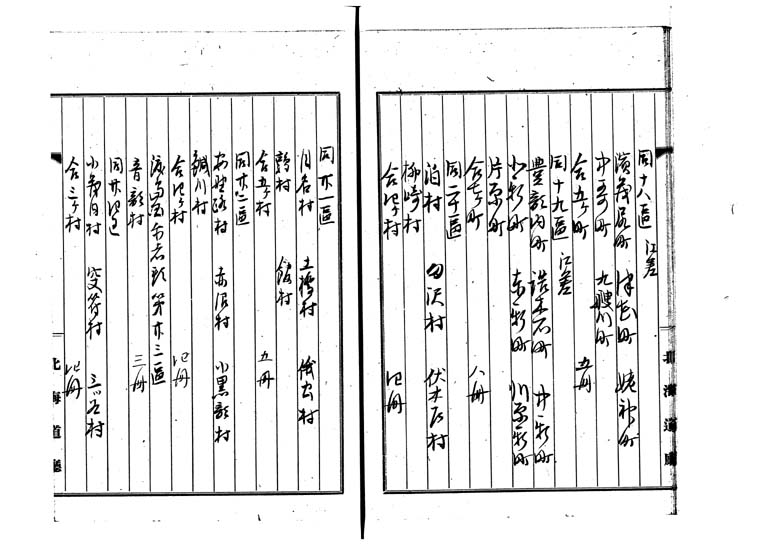 同十八區 江差
濱茂尻町 津花町 姥神町
中哥町 九艘川町
合五ケ町 五冊
同十九區 江差
豊部内町 詰木石町 中新町
小新町 東新町 川原新町
片原町
合七ケ町 八冊
同二十區
泊村 田沢村 伏木戸村
柳崎村
合四ケ村 四冊
北海道廳
同廿一區
目名村 土橋村 俄虫村
鶉村 館村
合五ケ村 五冊
同廿二區
安野呂村 赤沼村 小黒部村
鯎川村
合四ケ村 四冊
後志國爾志郡第廿三區
音部村 三冊
同廿四區
小茂内村 突符村 三ツ谷村
合三ケ村 四冊
北海道廳